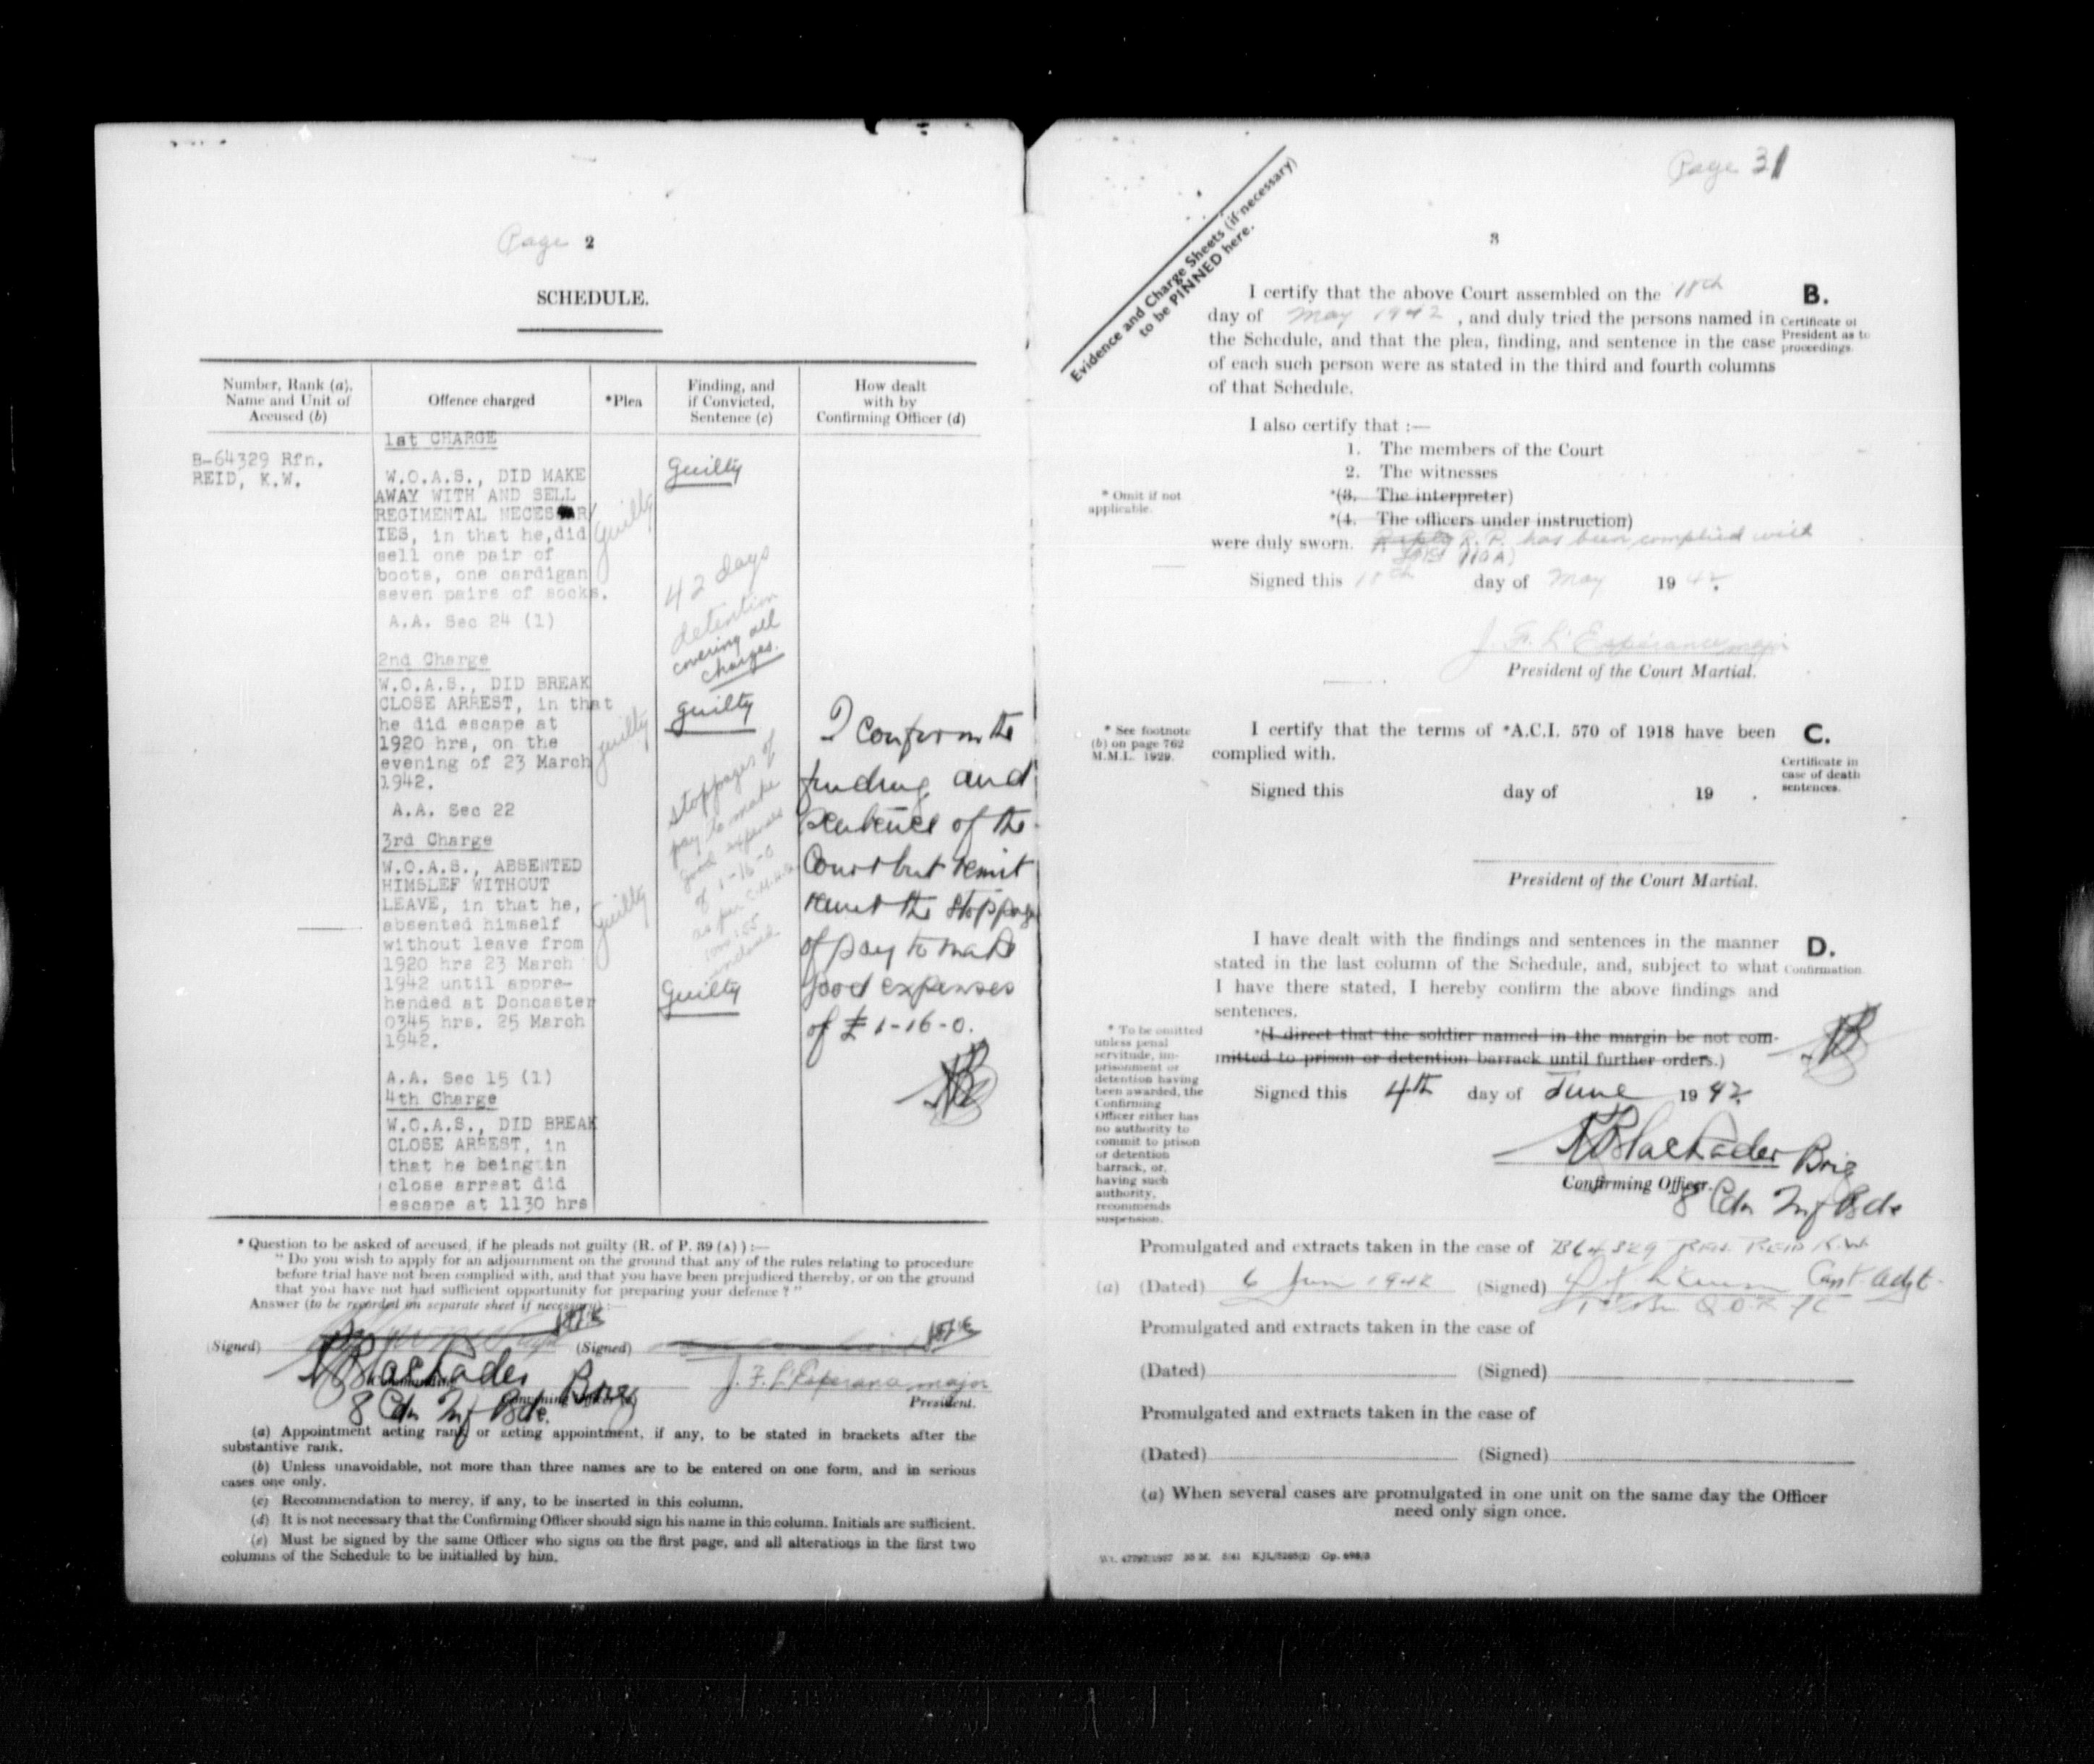 Page 2
SCHEDULE.
Number, Rank (a),
Name and Unit of
Accused (b)
Offence charged
*Plea
Finding, and
if Convicted,
Sentence (c)
How dealt
with by
Confirming Officer (d)
B-64329 Rfn.
REID, K.W.
1st CHARGE
W.O.A.S., DID MAKE
AWAY WITH AND SELL
REGIMENTAL NECESSAR
IES, in that he, did
sell one pair of
boots, one cardigan
seven pairs of socks.
A.A. Sec 24 (1)
2nd Charge
W.O.A.S., DID BREAK
CLOSE ARREST, in that
he did escape at
1920 hrs, on the
evening of 23 March
1942.
A.A. Sec 22
3rd Charge
W.O.A.S., ABSENTED
HIMSLEF WITHOUT
LEAVE, in that he,
absented himself
without leave from
1920 hrs 23 March
1942 until appre-
hended at Doncaster
0345 hrs. 25 March
1942.
A.A. Sec 15 (1)
4th Charge
W.O.A.S., DID BREAK
CLOSE ARREST, in
that he being in
close arrest did
escape at 1130 hrs
Guilty
Guilty
Guilty
Guilty
42 days
detention
covering all
charges.
Guilty
Stoppages of
pay to make
good expenses
of 1-16-0
as per
Guilty
I confirm the
finding and
sentence of the
Court but remit
remit the stoppage
of pay to make
good expenses
of £ 1-16-0.
* Question to be asked of accused, if he pleads not guilty (R. of P. 39 (A)):—
" Do you wish to apply for an adjournment on the ground that any of the rules relating to procedure
before trial have not been complied with, and that you have been prejudiced thereby, or on the ground
that you have not had sufficient opportunity for preparing your defence ? "
Answer (to be recorded on separate sheet if necessary):—
(Signed) (Signed)
Brig J. F. L'Esperance major
8 Cdn Inf Bde. President.
(a) Appointment acting rank or acting appointment, if any, to be stated in brackets after the
substantive rank.
(b) Unless unavoidable, not more than three names are to be entered on one form, and in serious
cases one only.
(c) Recommendation to mercy, if any, to be inserted in this column.
(d) It is not necessary that the Confirming Officer should sign his name in this column. Initials are sufficient.
(e) Must be signed by the same Officer who signs on the first page, and all alterations in the first two
columns of the Schedule to be initialled by him.
Page 31
3
Evidence and Charge Sheets (if necessary)
to be PINNED here.
I certify that the above Court assembled on the 18th
day of May 1942, and duly tried the persons named in
the Schedule, and that the plea, finding, and sentence in the case
of each such person were as stated in the third and fourth columns
of that Schedule.
B.
Certificate of
President as to
proceedings.
I also certify that :—
1. The members of the Court
2. The witnesses
*(3. The interpreter)
*(4. The officers under instruction)
* Omit if not
applicable.
were duly sworn. R.P. has been complied with
Signed this 18th day of May 1942.
J. F. L'Esperance major
President of the Court Martial.
* See footnote
(b) on page 762
M.M.L. 1929.
I certify that the terms of *A.C.I. 570 of 1918 have been
complied with.
Signed this day of 19 .
C.
Certificate in
case of death
sentences.
President of the Court Martial.
I have dealt with the findings and sentences in the manner
stated in the last column of the Schedule, and, subject to what
I have there stated, I hereby confirm the above findings and
sentences.
D.
Confirmation.
*(I direct that the soldier named in the margin be not com-
mitted to prison or detention barrack until further orders.)
* To be omitted
unless penal
servitude, im-
prisonment or
detention having
been awarded, the
Confirming
Officer either has
no authority to
commit to prison
or detention
barrack, or,
having such
authority,
recommends
suspension.
Signed this 4th day of June 1942.
Brig
Confirming Officer.
8 Cdn Inf Bde
Promulgated and extracts taken in the case of B64329 Rfn. REID K.W.
(a) (Dated) 6 Jun 1942 (Signed) Capt Adjt
Promulgated and extracts taken in the case of
(Dated) (Signed)
Promulgated and extracts taken in the case of
(Dated) (Signed)
(a) When several cases are promulgated in one unit on the same day the Officer
need only sign once.